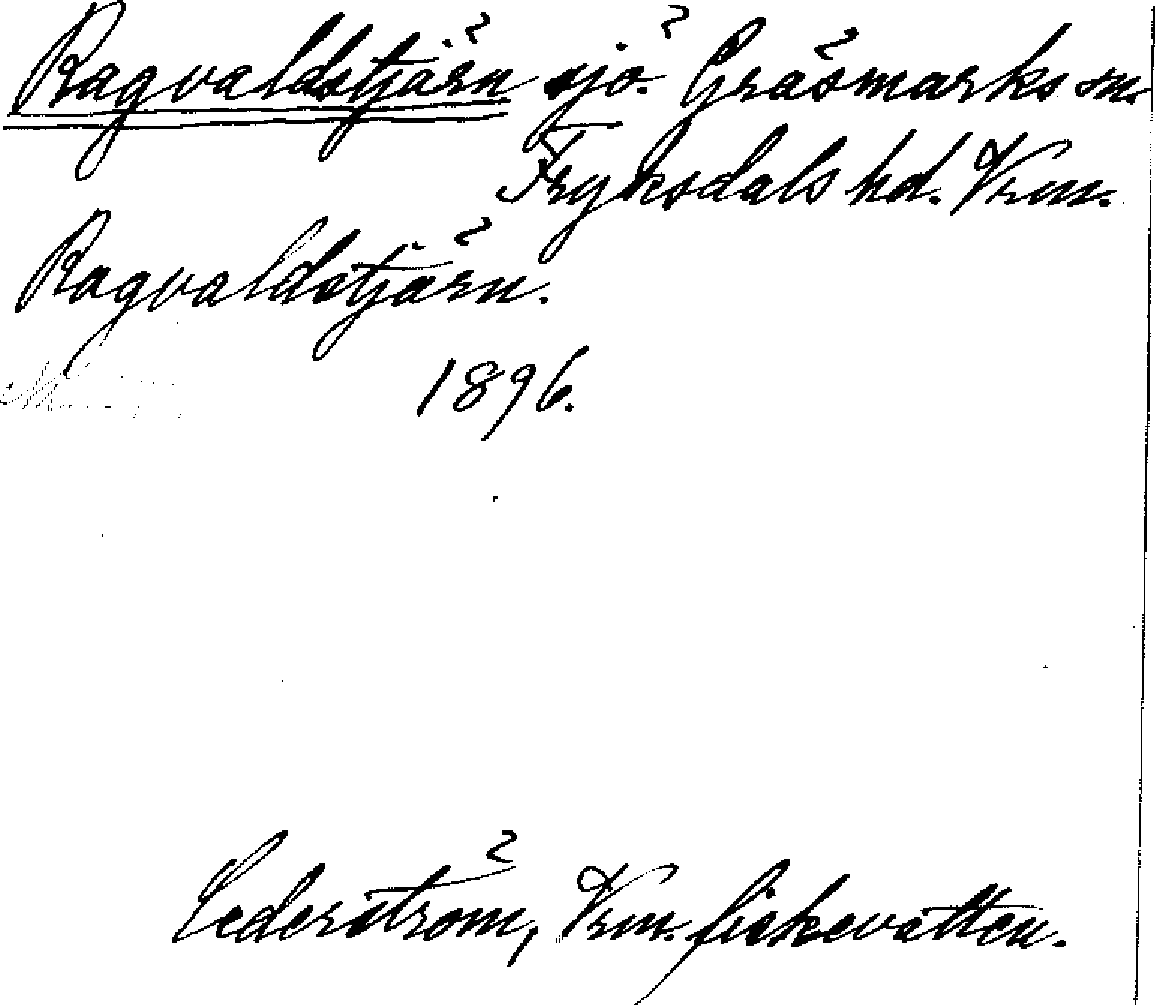 Ragvaldstjärn sjö. Gräsmarks sn.
Fryksdals hd. Vrm.
Ragvaldstjärn.
1896.
Cederström, Vrm. fiskevatten.